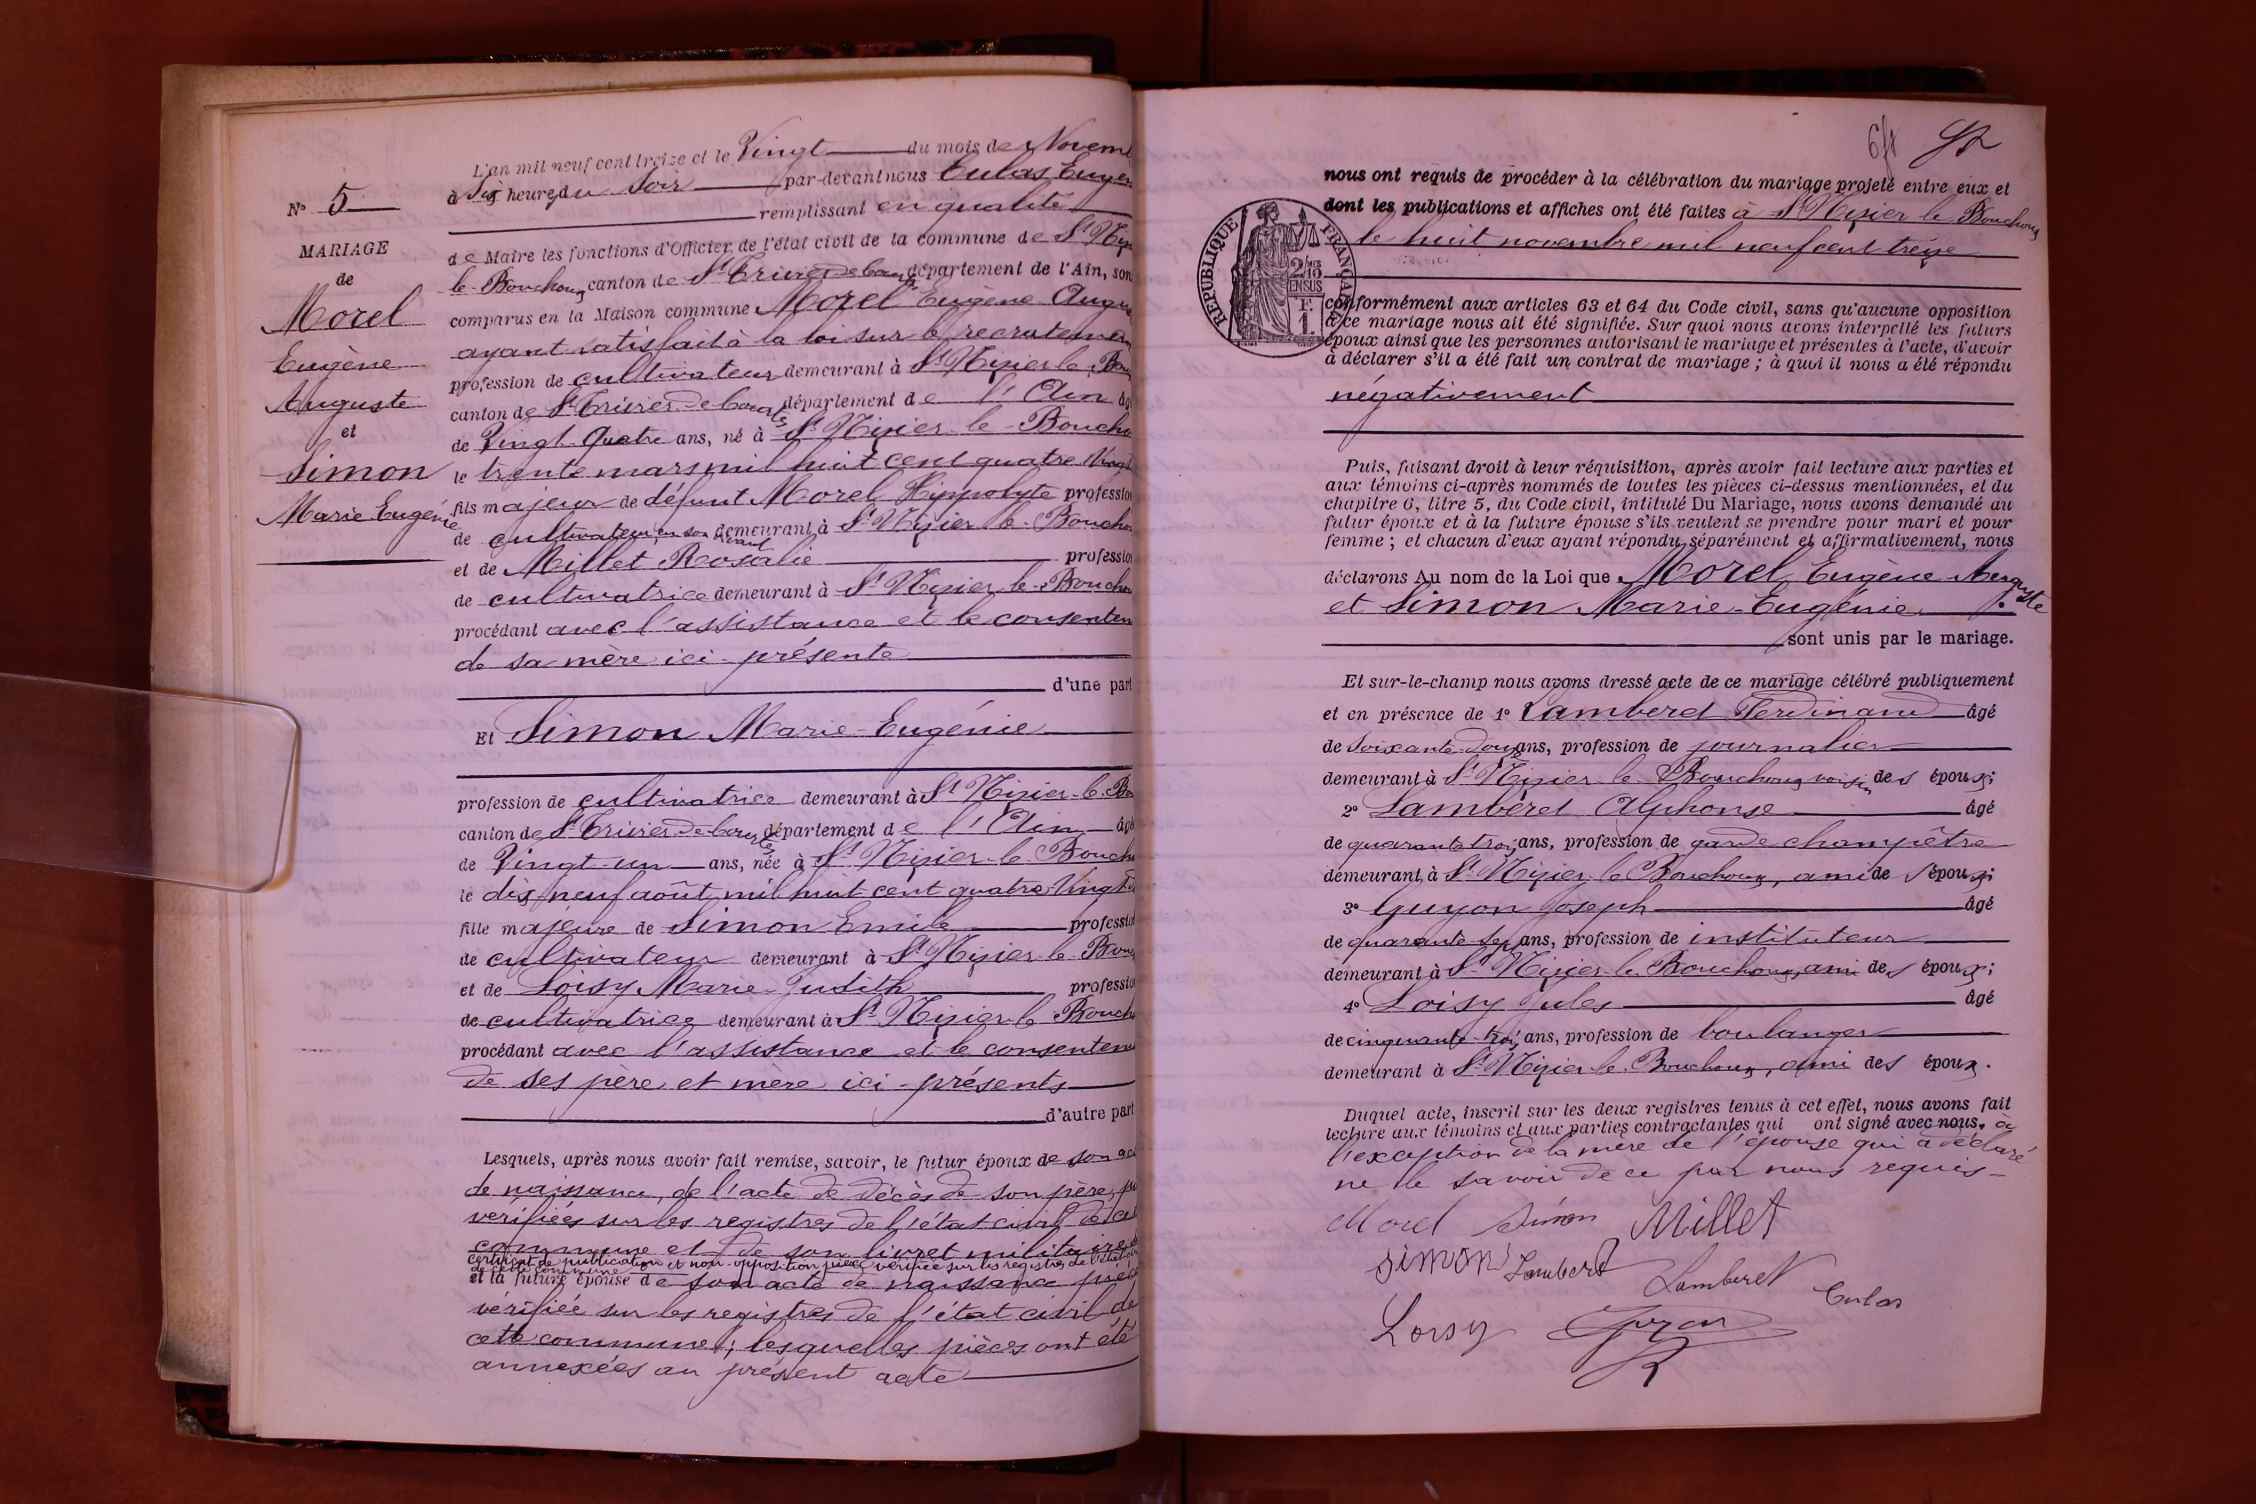 N° 5
MARIAGE
de
Morel
Eugène
Auguste
et
Simon
Marie Eugénie
L'an mil neuf cent treize et le Vingt du mois de Novem
à Six heures du Soir par-devant nous Culas Eugè
remplissant en qualité
de Maire les fonctions d'Officier de l'état civil de la commune de St Nizi
le Bouchoux canton de St Trivier de Courtes département de l'Ain, son
comparus en la Maison commune Morel Eugène Augu
ayant satisfait à la loi sur le recrutemen
profession de cultivateur demeurant à St Nizier le Bou
canton de St Trivier de Courtes département de l'Ain âg
de Vingt Quatre ans, né à St Nizier le Boucho
le trente mars mil huit cent quatre Vingt
fils majeur de défunt Morel Hippolyte profession
de cultivateur en son vivant demeurant à St Nizier le Boucho
et de Millet Rosalie profession
de cultivatrice demeurant à St Nizier le Boucho
procédant avec l'assistance et le consentem
de sa mère ici présente
d'une part
Et Simon Marie Eugénie
profession de cultivatrice demeurant à St Nizier le Bou
canton de St Trivier de Courtes département de l'Ain âgé
de Vingt-un ans, née à St Nizier le Bouch
le dix neuf août mil huit cent quatre Vingt
fille majeure de Simon Emile profession
de cultivateur demeurant à St Nizier le Bouc
et de Loisy Marie Judith profession
de cultivatrice demeurant à St Nizier le Bouch
procédant avec l'assistance et le consentem
de ses père et mère ici présents
d'autre part
Lesquels, après nous avoir fait remise, savoir, le futur époux de son ac
de naissance, de l'acte de décès de son père,
verifiées sur les registres de l'état civil de
commune et de son livret militaire
certificat de publication et non-opposition pièce vérifiée sur les registres de l'état civil
de cette commune
et la future épouse de son acte de naissance pièc
vérifiée sur les registres de l'état civil de
cette commune; lesquelles pièces ont été
annexées au présent acte
6
nous ont requis de procéder à la célébration du mariage projeté entre eux et
dont les publications et affiches ont été faites à St Nizier le Bouchoux
le huit novembre mil neuf cent treize
RÉPUBLIQUE FRANÇAISE
2/10 EN SUS
F.
1.
conformément aux articles 63 et 64 du Code civil, sans qu'aucune opposition
à ce mariage nous ait été signifiée. Sur quoi nous avons interpellé les futurs
époux ainsi que les personnes autorisant le mariage et présentes à l'acte, d'avoir
à déclarer s'il a été fait un contrat de mariage ; à quoi il nous a été répondu
négativement
Puis, faisant droit à leur réquisition, après avoir fait lecture aux parties et
aux témoins ci-après nommés de toutes les pièces ci-dessus mentionnées, et du
chapitre 6, titre 5, du Code civil, intitulé Du Mariage, nous avons demandé au
futur époux et à la future épouse s'ils veulent se prendre pour mari et pour
femme ; et chacun d'eux ayant répondu séparément et affirmativement, nous
déclarons Au nom de la Loi que Morel Eugène Auguste
et Simon Marie-Eugénie
sont unis par le mariage.
Et sur-le-champ nous avons dressé acte de ce mariage célébré publiquement
et en présence de 1° Lamberet Ferdinand âgé
de soixante-douze ans, profession de journalier
demeurant à St Nizier le Bouchoux voisin des époux;
2° Lamberet Alphonse âgé
de quarante trois ans, profession de garde champêtre
demeurant à St Nizier le Bouchoux, ami des époux;
3° Guyon Joseph âgé
de quarante-sept ans, profession de instituteur
demeurant à St Nizier le Bouchoux, ami des époux;
4° Loisy Jules âgé
de cinquante-trois ans, profession de boulanger
demeurant à St Nizier le Bouchoux, ami des époux.
Duquel acte, inscrit sur les deux registres tenus à cet effet, nous avons fait
lecture aux témoins et aux parties contractantes qui ont signé avec nous, à
l'exception de la mère de l'épouse qui a déclaré
ne le savoir de ce par nous requis
Morel Simon Millet
Simon Lamberet Lamberet Culas
Loisy Guyon